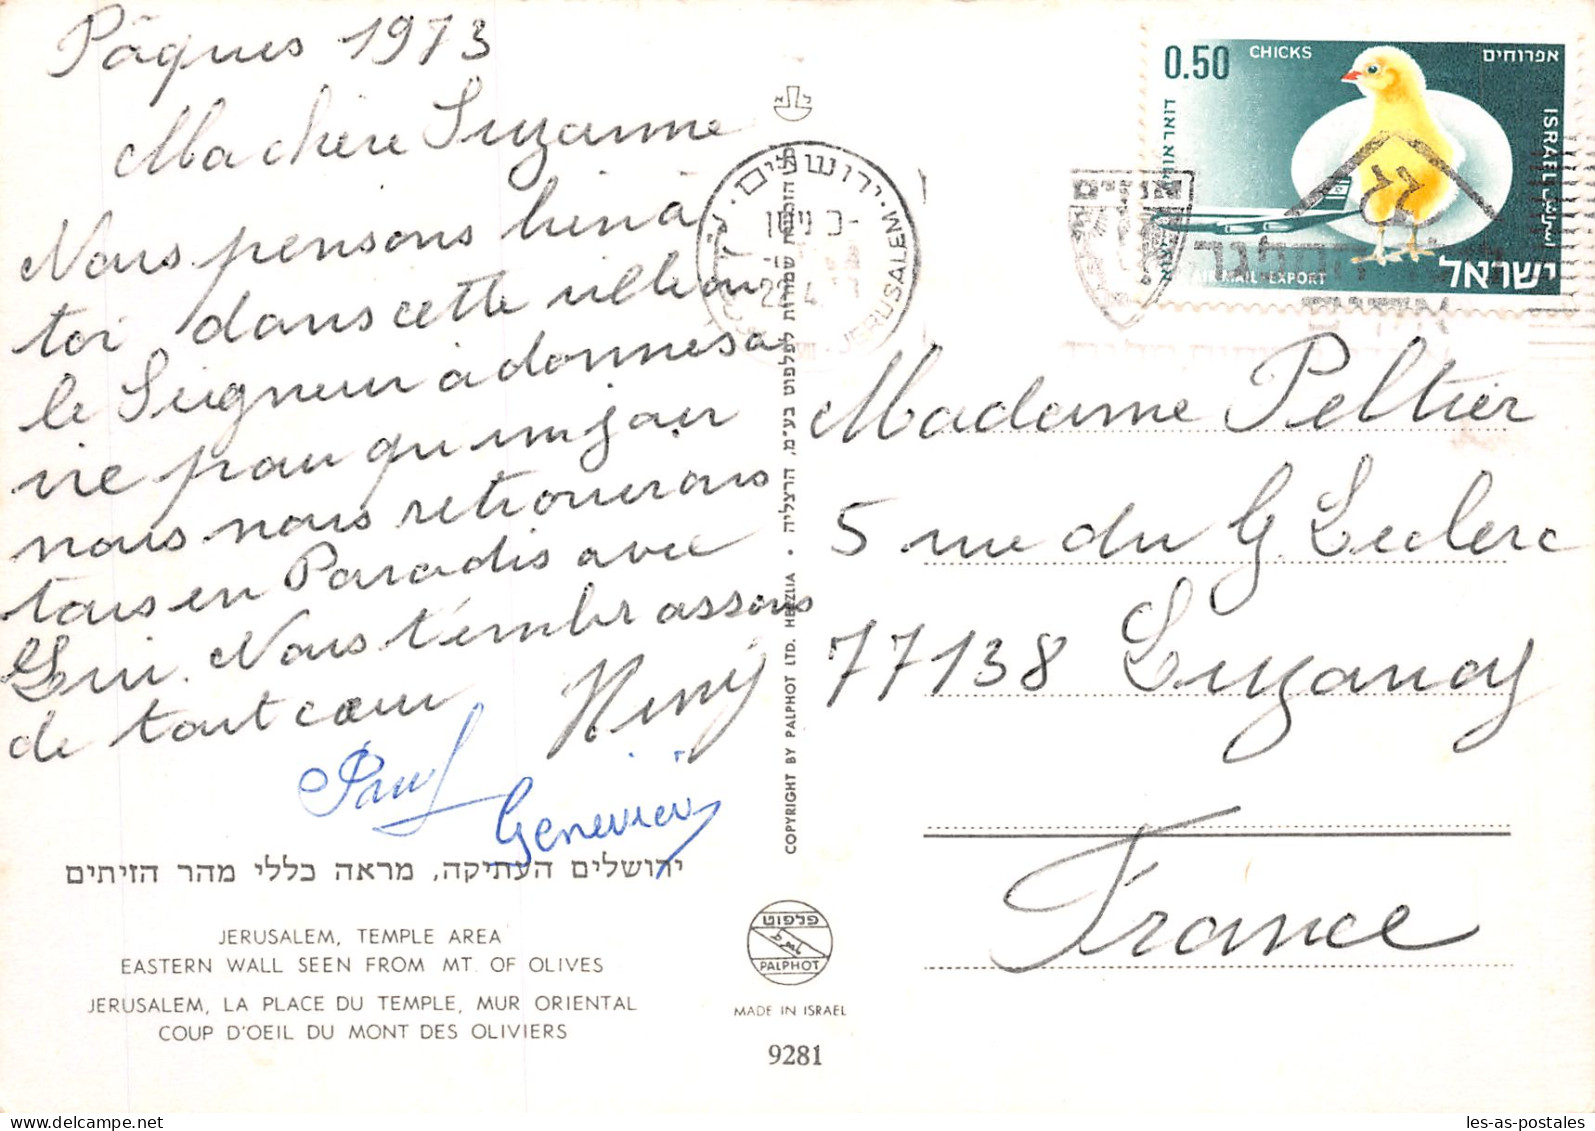 Pâques 1973
Ma chère Suzanne
Nous pensons bien à
toi dans cette ville où
le Seigneur a donné sa
vie pour qu'un jour
nous nous retrouverons
tous en Paradis avec
Lui. Nous t'embrassons
de tout cœur
Paul
Geneviève
ירושלים העתיקה, מראה כללי מהר הזיתים
JERUSALEM, TEMPLE AREA
EASTERN WALL SEEN FROM MT. OF OLIVES
JERUSALEM, LA PLACE DU TEMPLE, MUR ORIENTAL
COUP D'OEIL DU MONT DES OLIVIERS
COPYRIGHT BY PALPHOT LTD. HERZLIA • הזכויות שמורות לפלפוט בע"מ, הרצליה
פלפוט
PALPHOT
MADE IN ISRAEL
9281
ירושלים
JERUSALEM
0.50 CHICKS אפרוחים
ISRAEL
AIR MAIL-EXPORT
ישראל
Madame Peltier
5 rue du G. Leclerc
77138 Luzancy
France
les-as-postales